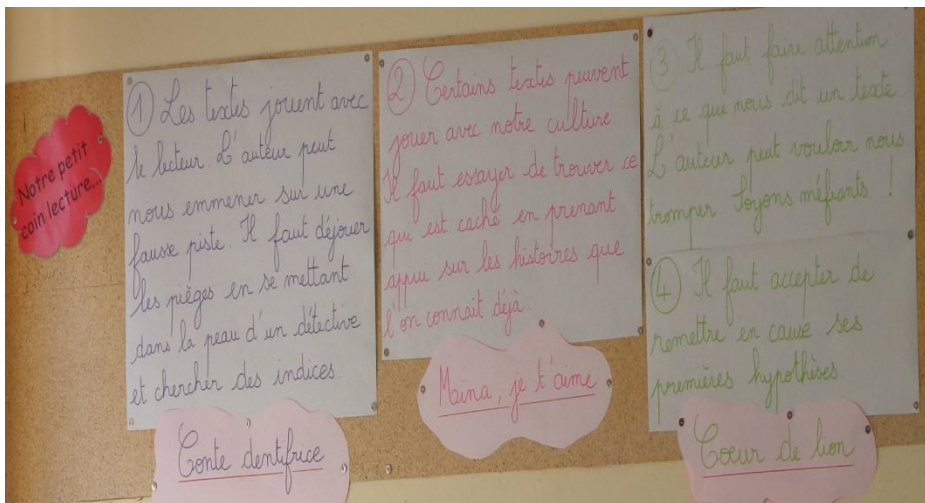 Notre petit
coin lecture...
① Les textes jouent avec
le lecteur. L'auteur peut
nous emmener sur une
fausse piste. Il faut déjouer
les pièges en se mettant
dans la peau d'un détective
et chercher des indices.
Conte dentifrice
② Certains textes peuvent
jouer avec notre culture.
Il faut essayer de trouver ce
qui est caché en prenant
appui sur les histoires que
l'on connait déjà.
Maina, je t'aime
③ Il faut faire attention
à ce que nous dit un texte
L'auteur peut vouloir nous
tromper Soyons méfiants..!
④ Il faut accepter de
remettre en cause ses
premières hypothèses.
Coeur de lion